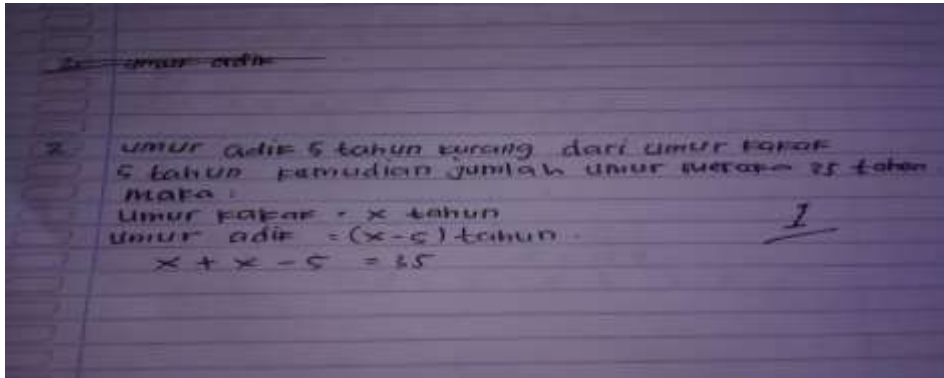 umur adik
2 umur adik 5 tahun kurang dari umur kakak
5 tahun kemudian jumlah umur mereka 35 tahun
maka :
umur kakak = x tahun
umur adik = (x-5) tahun.
1
x + x - 5 = 35